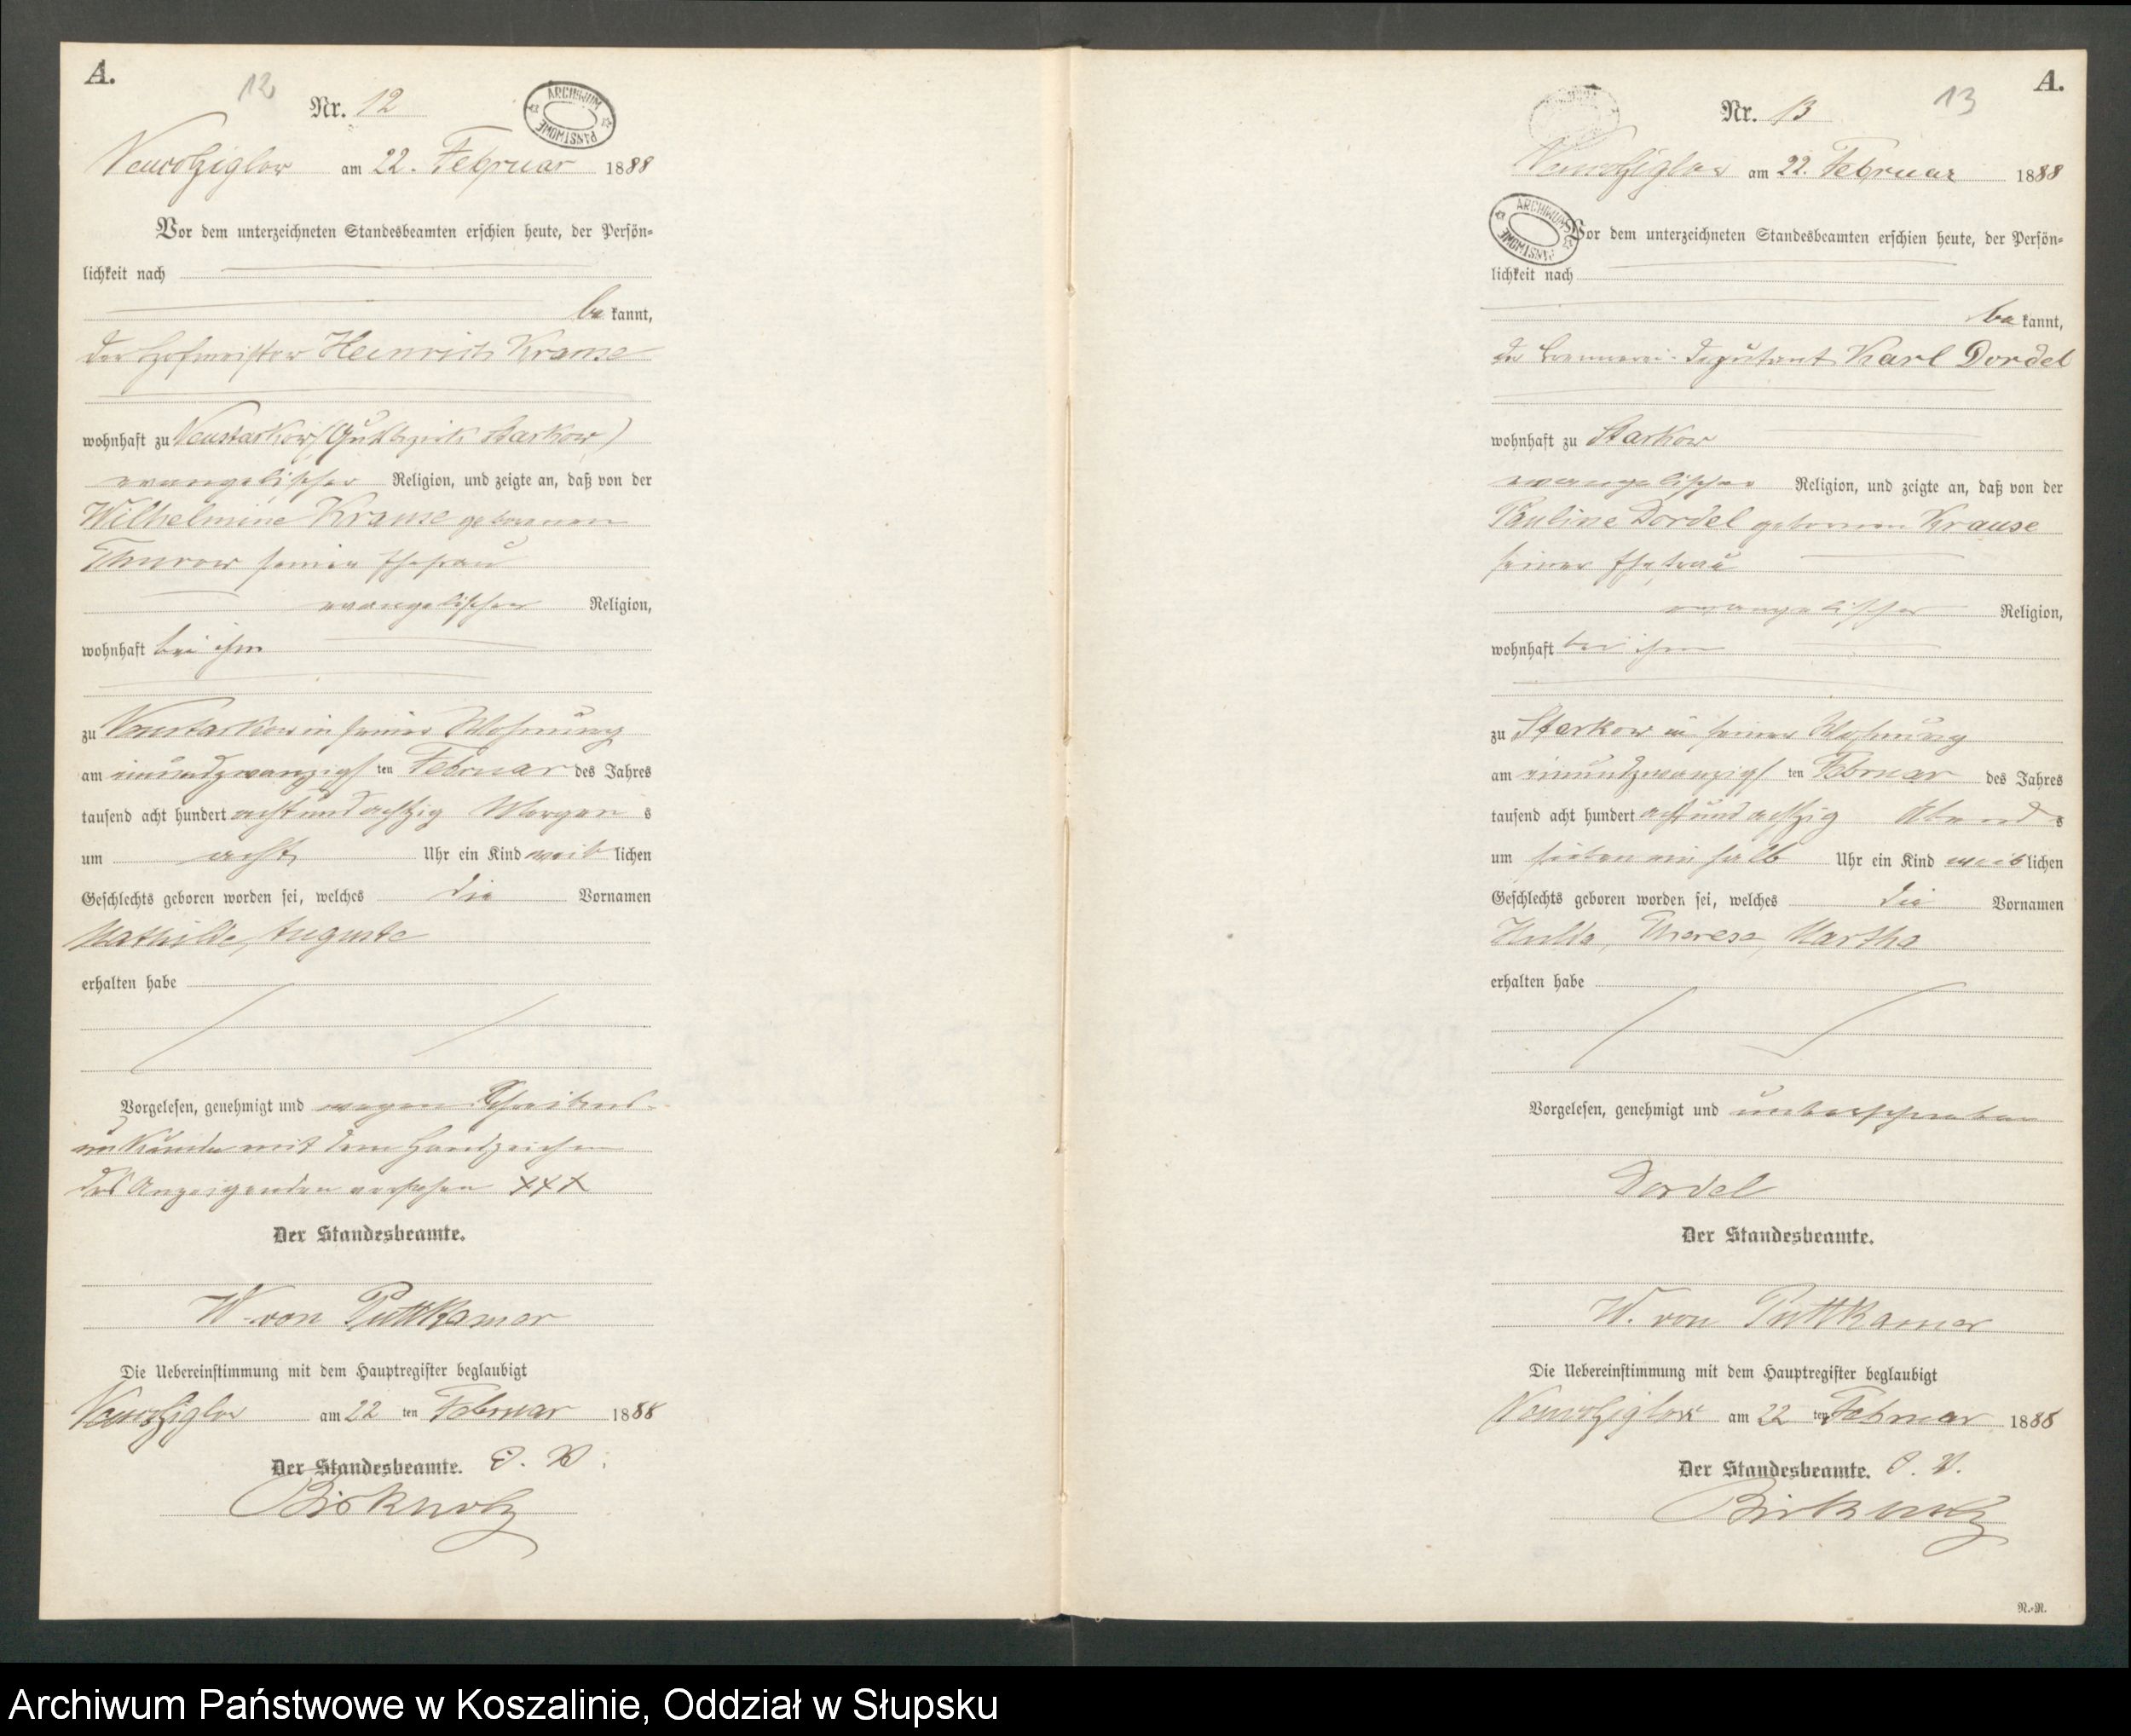 A.
12
Nr. 12
ARCHIWUM PAŃSTWOWE
Neuwolziglow am 22. Februar 1888
Vor dem unterzeichneten Standesbeamten erschien heute, der Persön=
lichkeit nach
be kannt,
der Hofmeister Heinrich Krause
wohnhaft zu Neustarkow (Gutsbezirk Starkow)
evangelischer Religion, und zeigte an, daß von der
Wilhelmine Krause geborenen
Thurow seiner Ehefrau
evangelischer Religion,
wohnhaft bei ihm
zu Neustarkow in seiner Wohnung
am einundzwanzigs ten Februar des Jahres
tausend acht hundert achtundachtzig Morgen s
um acht Uhr ein Kind weib lichen
Geschlechts geboren worden sei, welches die Vornamen
Mathilde, Auguste
erhalten habe
Vorgelesen, genehmigt und wegen Schreibens-
unkunde mit dem Handzeichen
des Anzeigenden versehen XXX
Der Standesbeamte.
W. von Puttkamer
Die Uebereinstimmung mit dem Hauptregister beglaubigt
Neuwolziglow am 22 ten Februar 1888
Der Standesbeamte. J. V.
A.
13
Nr. 13
Neuwolziglow am 22. Februar 1888
ARCHIWUM PAŃSTWOWE
Vor dem unterzeichneten Standesbeamten erschien heute, der Persön=
lichkeit nach
be kannt,
der Brennerei-Deputant Karl Dordel
wohnhaft zu Starkow
evangelischer Religion, und zeigte an, daß von der
Pauline Dordel geborenen Krause
seiner Ehefrau
evangelischer Religion,
wohnhaft bei ihm
zu Starkow in seiner Wohnung
am einundzwanzigs ten Februar des Jahres
tausend acht hundert achtundachtzig Abend s
um sieben ein halb Uhr ein Kind weib lichen
Geschlechts geboren worden sei, welches die Vornamen
Hulda, Therese, Martha
erhalten habe
Vorgelesen, genehmigt und unterschrieben
Dordel
Der Standesbeamte.
W. von Puttkamer
Die Uebereinstimmung mit dem Hauptregister beglaubigt
Neuwolziglow am 22 ten Februar 1888
Der Standesbeamte. J. V.
R.-R.
Archiwum Państwowe w Koszalinie, Oddział w Słupsku